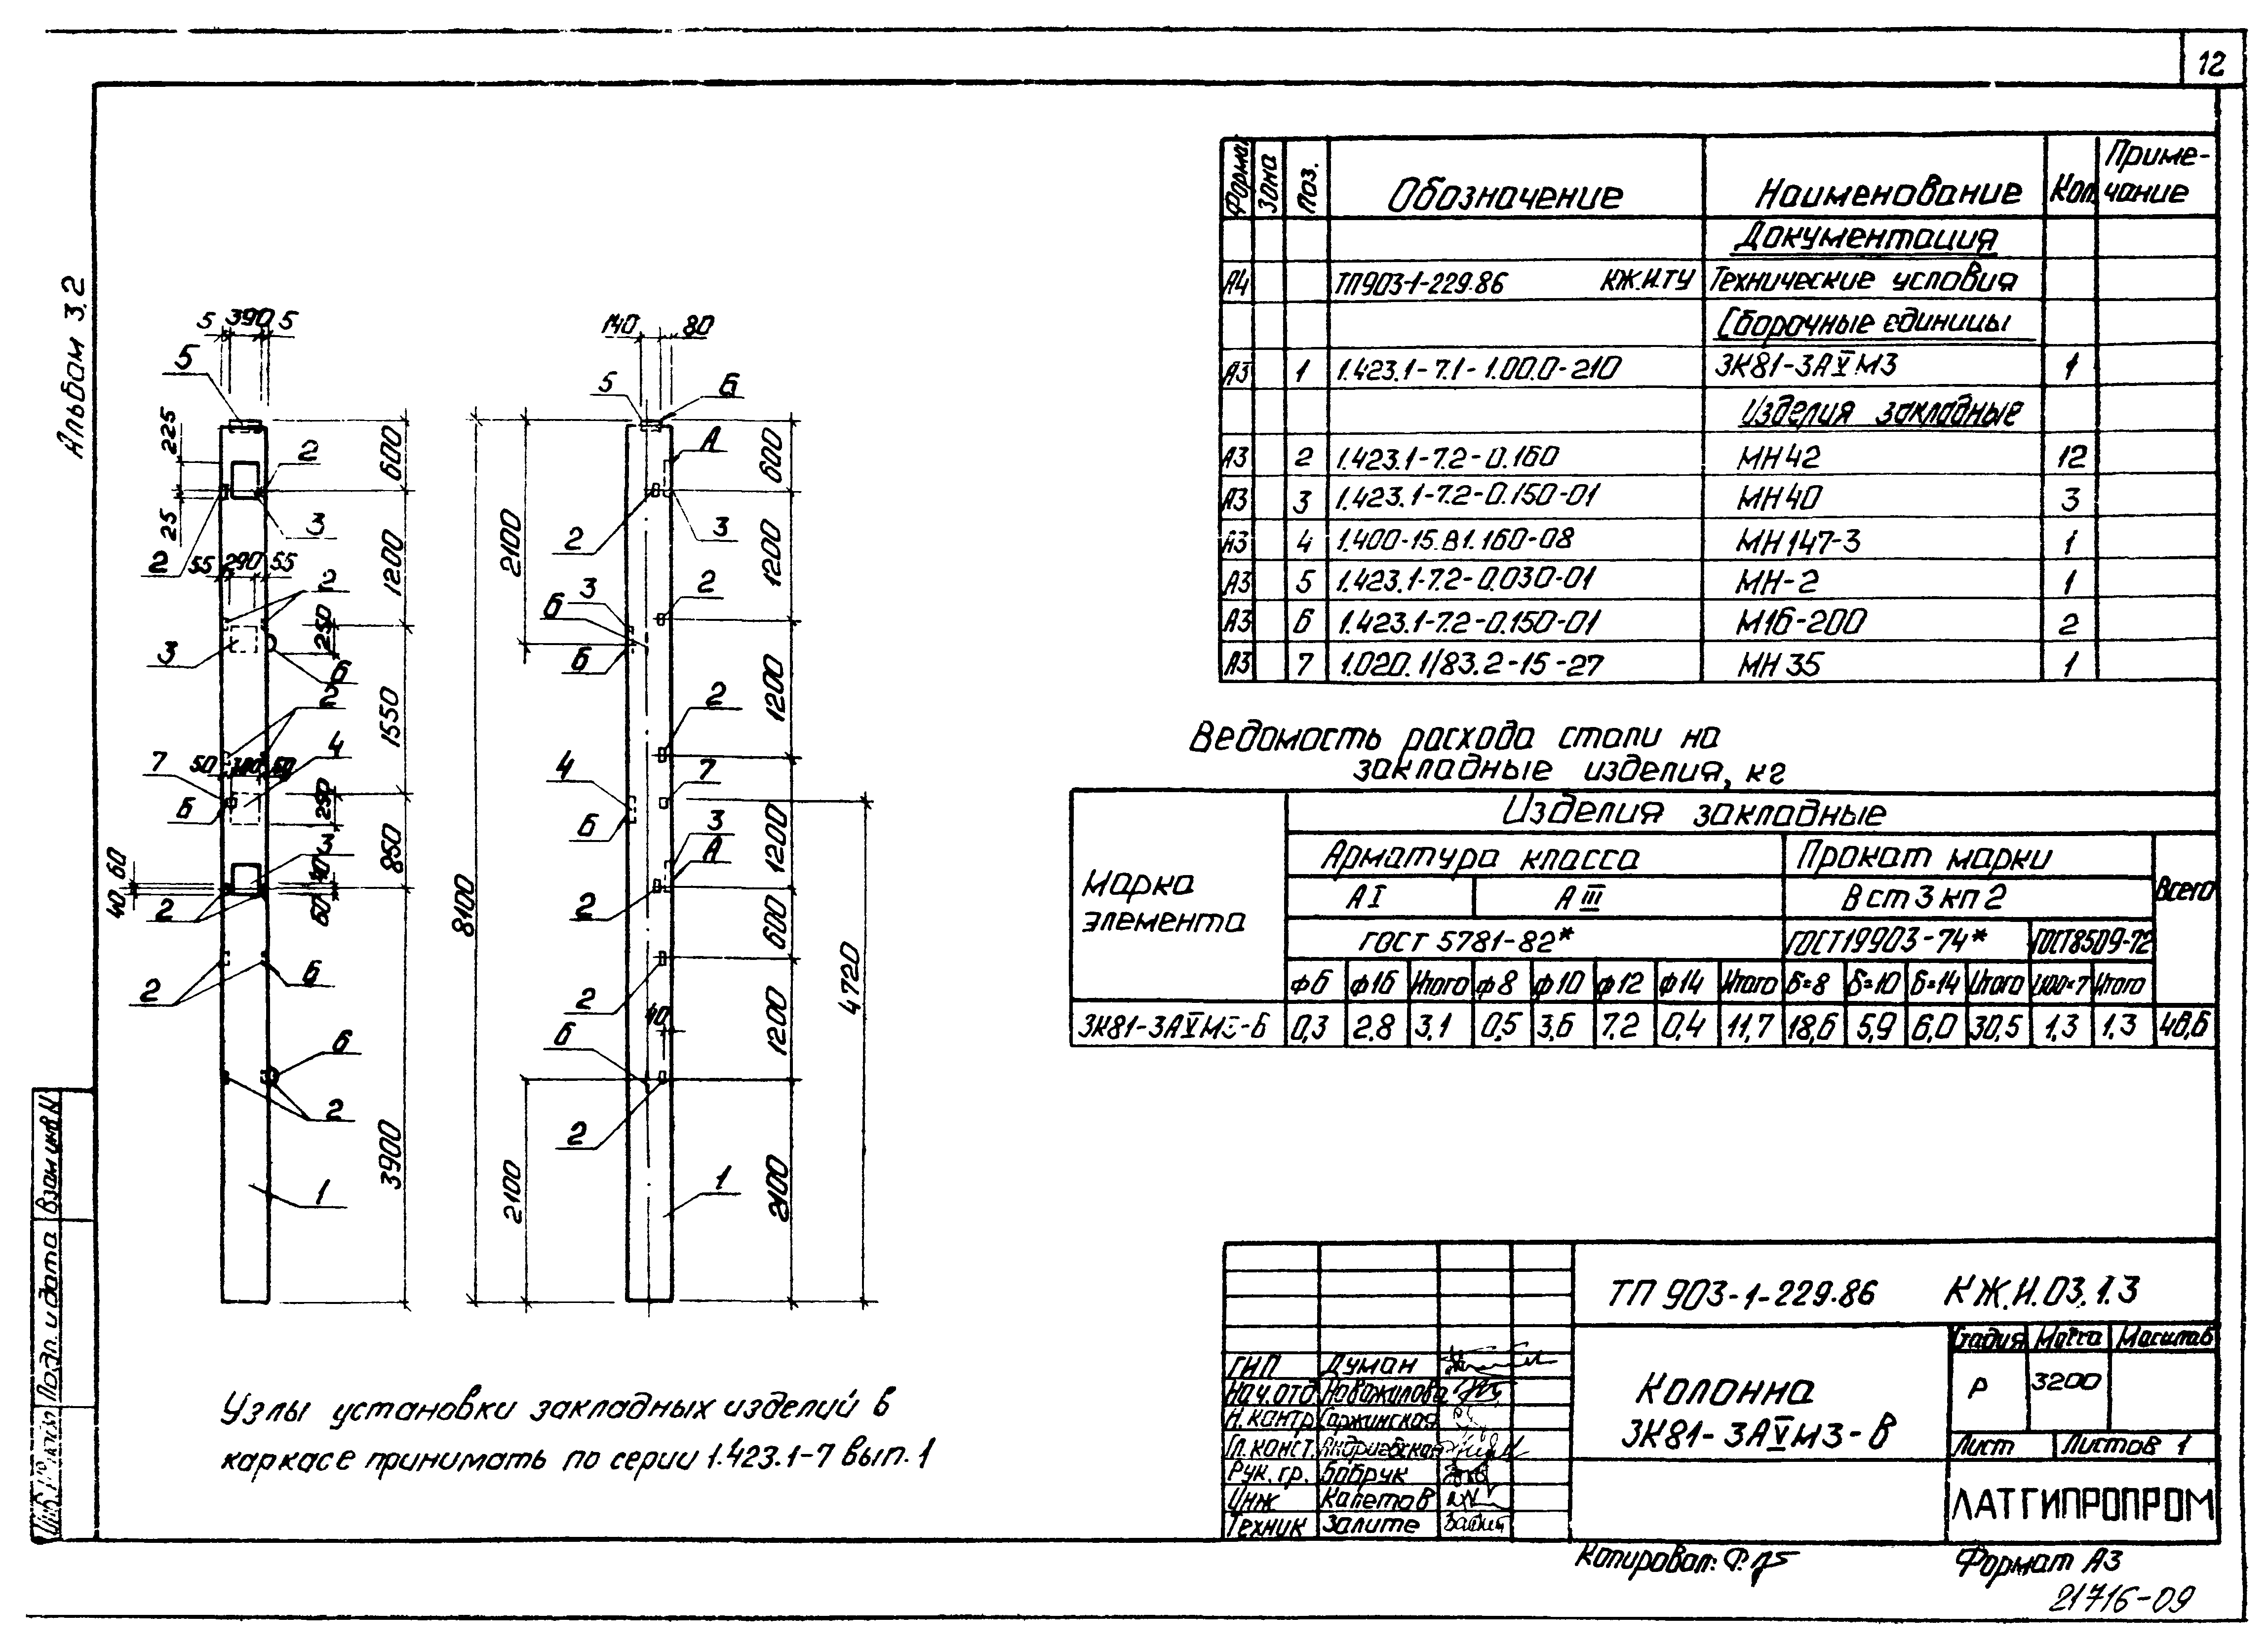 12
Альбом 3.2
Формат Зона Поз. Обозначение Наименование Кол. Приме-чание
Документация
А4 ТП903-1-229.86 КЖ.И.ТУ Технические условия
Сборочные единицы
А3 1 1.423.1-7.1-1.00.0-210 3К81-3АⅤМ3 1
Изделия закладные
А3 2 1.423.1-7.2-0.160 МН42 12
А3 3 1.423.1-7.2-0.150-01 МН40 3
А3 4 1.400-15.В1.160-08 МН147-3 1
А3 5 1.423.1-7.2-0.030-01 МН-2 1
А3 6 1.423.1-7.2-0.150-01 М16-200 2
А3 7 1.020.1/83.2-15-27 МН35 1
Ведомость расхода стали на
закладные изделия, кг
Марка элемента
Изделия закладные
Арматура класса Прокат марки Всего
АⅠ АⅢ Вст3кп2
ГОСТ 5781-82* ГОСТ19903-74* ГОСТ8509-72
ф6 ф16 Итого ф8 ф10 ф12 ф14 Итого δ=8 δ=10 δ=14 Итого L100×7 Итого
3К81-3АⅤМ3-Б 0,3 2.8 3,1 0,5 3,6 7.2 0,4 11,7 18,6 5,9 6,0 30,5 1.3 1.3 46,6
5 390 5
5
225
25
2
3
2
600
55 290 55
1200
2
250
3
6
2
1550
4
7
50 50
Б
250
3
850
60
40
60
2
2
Б
6
2
3900
1
140 80
5
Б
А
600
2100
2
3
1200
2
3
6
Б
1200
2
4
7
Б
1200
3
А
2
600
8100
4720
2
40
1200
6
2
2100
2100
1
Узлы установки закладных изделий в
каркасе принимать по серии 1.423.1-7 вып.1
Взам инв.N
Подп. и дата
ТП 903-1-229.86 КЖ.И.03.1.3
Колонна
3К81-3АⅤМ3-В
Стадия Масса Масштаб
Р 3200
Лист Листов 1
ЛАТГИПРОПРОМ
ГИП Думан
Нач.отд Новожилова
Н.контр Гаржинская
Гл.конст. Андриевская
Рук.гр. Бобрук
Инж Капетов
Техник Залите
Копировал:
Формат А3
21716-09